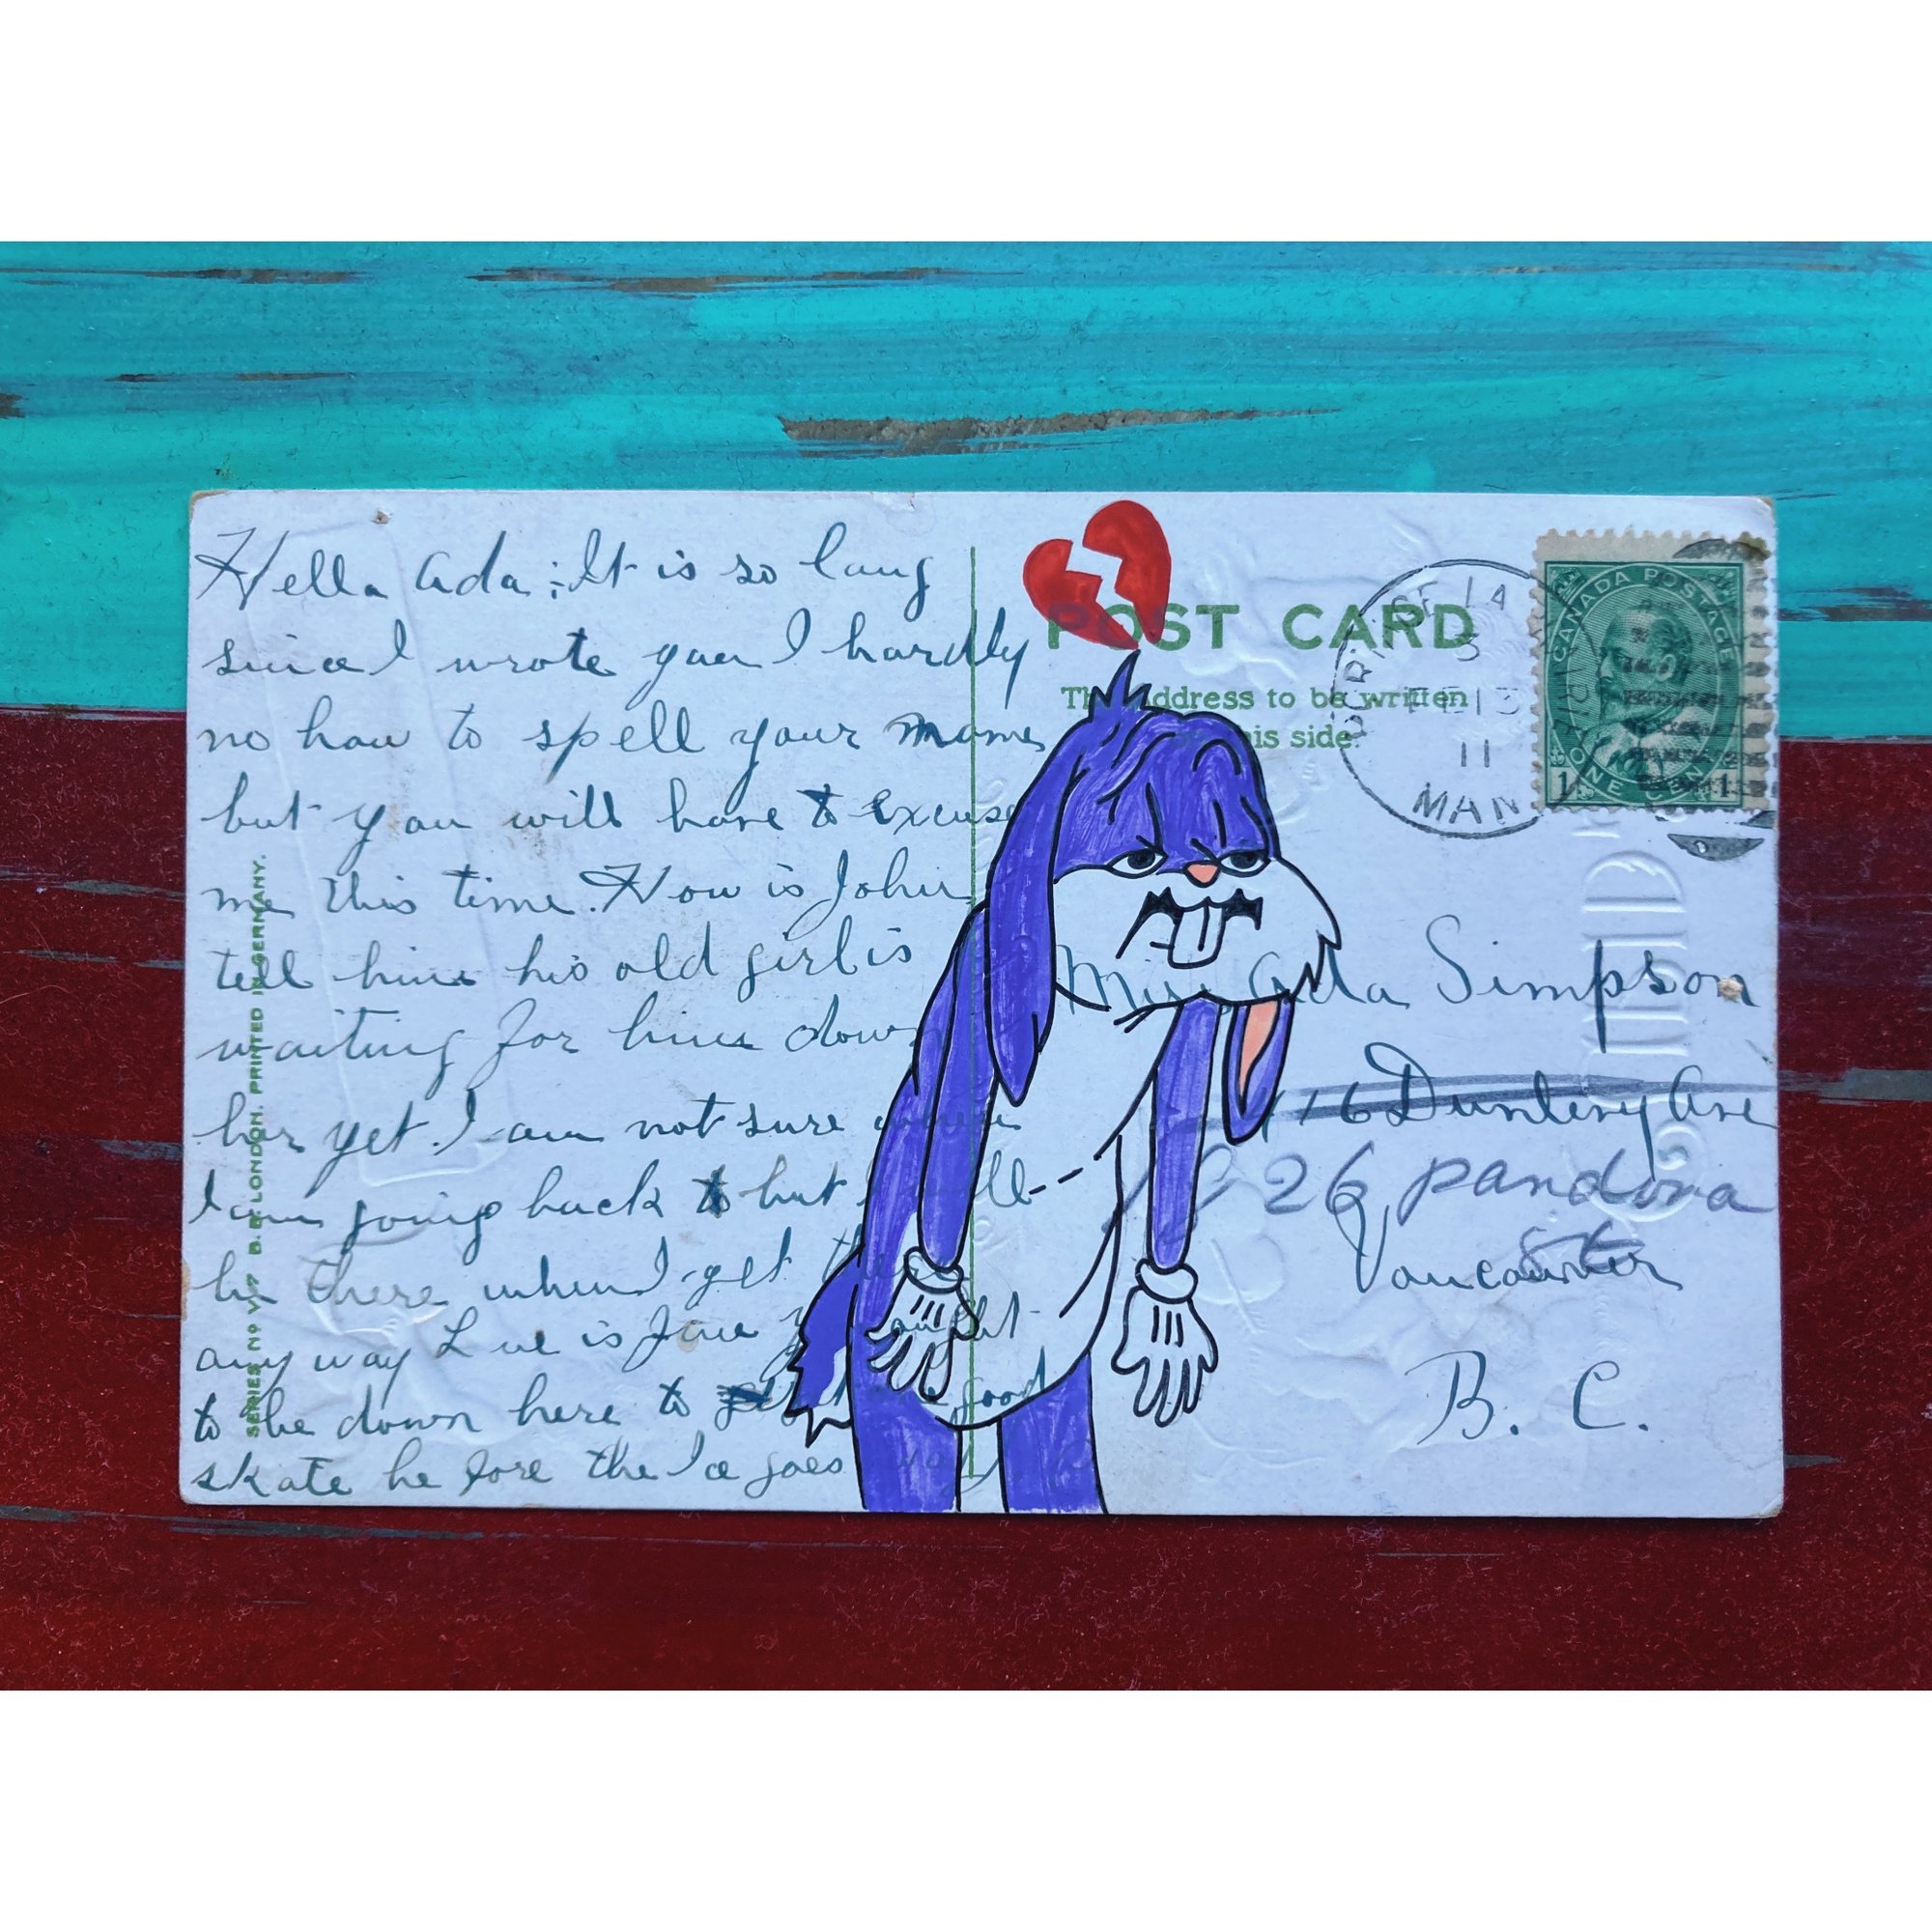 Hello Ada; It is so long
since I wrote you I hardly
no how to spell your name
but you will have to excuse
me this time. How is John
tell him his old girl is
waiting for him down
her yet. I am not sure when
I am going back to but
be there when I get
any way Lue is fine
to be down here to good
skate be fore the Ice goes
SERIES No V.7 B.B. LONDON. PRINTED IN GERMANY.
POST CARD
The address to be written
his side.
MAN
11
CANADA POSTAGE
ONE CENT
1 1
Miss Ada Simpson
116 Ave
26 Pandora
St
Vancouver
B. C.